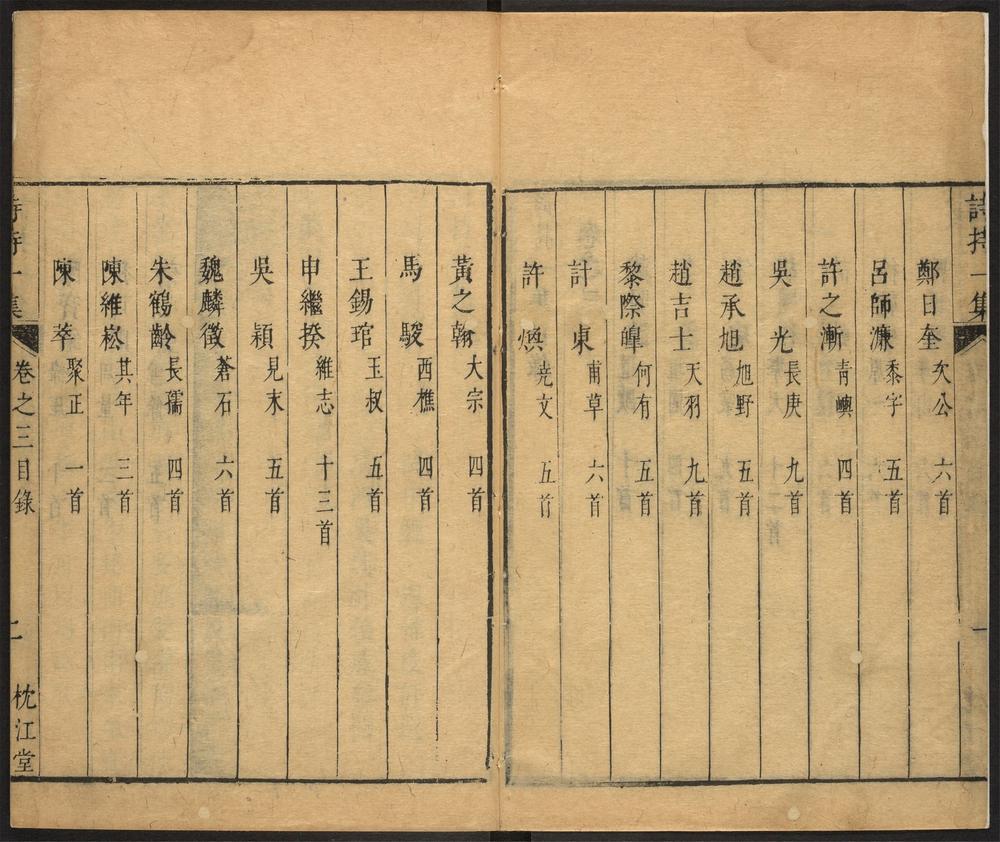 詩持一集
一
鄭日奎 次公 六首
呂師濂 黍字 五首
許之漸 青嶼 四首
吳光 長庚 九首
趙承旭 旭野 五首
趙吉士 天羽 九首
黎際皡 何有 五首
計東 甫草 六首
許煥 堯文 五首
黃之翰 大宗 四首
馬駿 西樵 四首
王錫琯 玉叔 五首
申繼揆 維志 十三首
吳穎 見末 五首
魏麟徵 蒼石 六首
朱鶴齡 長孺 四首
陳維崧 其年 三首
陳萃 聚正 一首
詩持一集 卷之三目錄 二 枕江堂